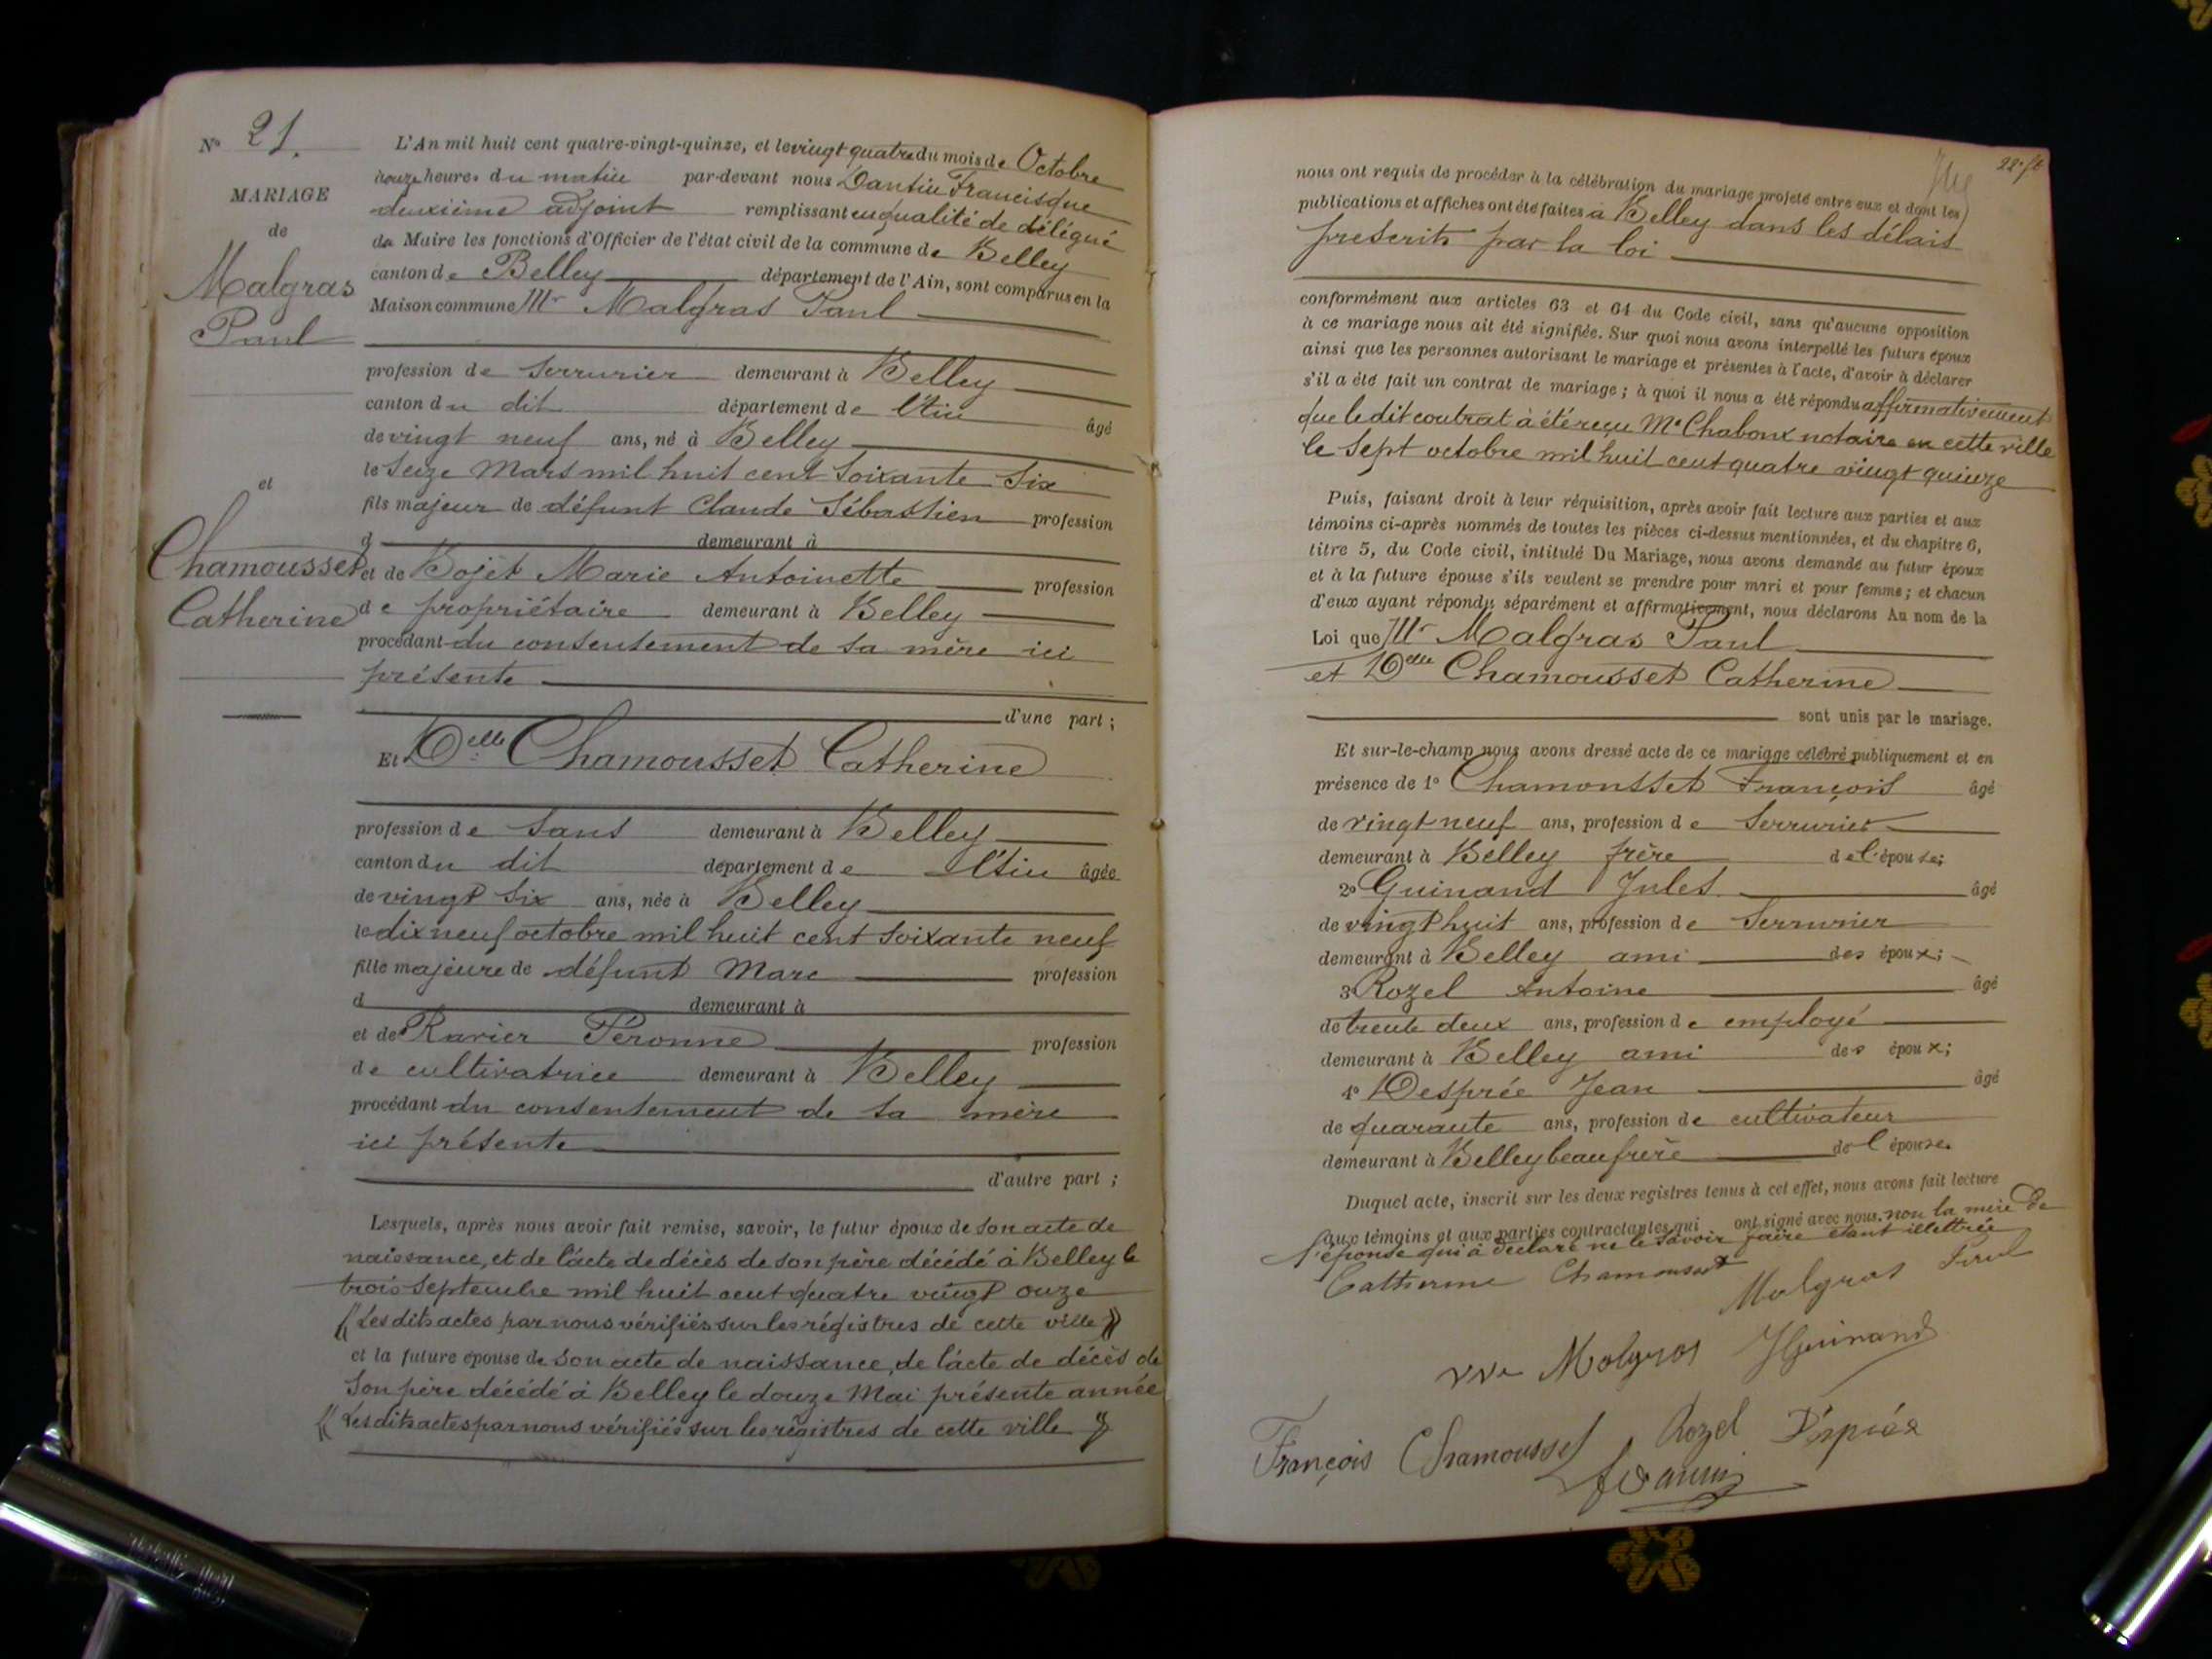 N° 21.
MARIAGE
de
Malgras
Paul
et
Chamousset
Catherine
L'An mil huit cent quatre-vingt-quinze, et le vingt quatre du mois de Octobre
à onze heures du matin par-devant nous Dantin Francisque
deuxième adjoint remplissant en qualité de délégué
du Maire les fonctions d'Officier de l'état civil de la commune de Belley
canton de Belley département de l'Ain, sont comparus en la
Maison commune Mr Malgras Paul
profession de serrurier demeurant à Belley
canton du dit département de l'Ain âgé
de vingt neuf ans, né à Belley
le Seize Mars mil huit cent soixante six
fils majeur de défunt Claude Sébastien profession
d demeurant à
et de Bojet Marie Antoinette profession
de propriétaire demeurant à Belley
procédant du consentement de sa mère ici
présente
d'une part ;
Et Delle Chamousset Catherine
profession de sans demeurant à Belley
canton du dit département de l'Ain âgée
de vingt six ans, née à Belley
le dix neuf octobre mil huit cent soixante neuf
fille majeure de défunt Marc profession
d demeurant à
et de Ravier Péronne profession
de cultivatrice demeurant à Belley
procédant du consentement de sa mère
ici présente
d'autre part ;
Lesquels, après nous avoir fait remise, savoir, le futur époux de son acte de
naissance, et de l'acte de décès de son père décédé à Belley le
trois Septembre mil huit cent quatre vingt onze
(( Les dits actes par nous vérifiés sur les régistres de cette ville ))
et la future épouse de son acte de naissance, de l'acte de décès de
son père décédé à Belley le douze Mai présente année
(( Les dits actes par nous vérifiés sur les régistres de cette ville ))
nous ont requis de procéder à la célébration du mariage projeté entre eux et dont les
publications et affiches ont été faites à Belley dans les délais
prescrits par la loi
conformément aux articles 63 et 64 du Code civil, sans qu'aucune opposition
à ce mariage nous ait été signifiée. Sur quoi nous avons interpellé les futurs époux
ainsi que les personnes autorisant le mariage et présentes à l'acte, d'avoir à déclarer
s'il a été fait un contrat de mariage ; à quoi il nous a été répondu affirmativement
que le dit contrat à été reçu Me Chaboux notaire en cette ville
le Sept octobre mil huit cent quatre vingt quinze
Puis, faisant droit à leur réquisition, après avoir fait lecture aux parties et aux
témoins ci-après nommés de toutes les pièces ci-dessus mentionnées, et du chapitre 6,
titre 5, du Code civil, intitulé Du Mariage, nous avons demandé au futur époux
et à la future épouse s'ils veulent se prendre pour mari et pour femme ; et chacun
d'eux ayant répondu séparément et affirmativement, nous déclarons Au nom de la
Loi que Mr Malgras Paul
et Delle Chamousset Catherine
sont unis par le mariage.
Et sur-le-champ nous avons dressé acte de ce mariage célébré publiquement et en
présence de 1° Chamousset François âgé
de vingt neuf ans, profession de serrurier
demeurant à Belley frère de l'épouse;
2° Guinand Jules âgé
de vingt huit ans, profession de serrurier
demeurant à Belley ami des époux;
3° Rozel Antoine âgé
de trente deux ans, profession de employé
demeurant à Belley ami des époux;
4° Desprée Jean âgé
de quarante ans, profession de cultivateur
demeurant à Belley beau frère de l'épouse.
Duquel acte, inscrit sur les deux registres tenus à cet effet, nous avons fait lecture
aux témoins et aux parties contractantes qui ont signé avec nous. non la mère de
l'épouse qui à déclaré ne le savoir faire étant illettrée
Catherine Chamousset
Malgras Paul
vve Malgras JGuinand
François Chamousset Rozel